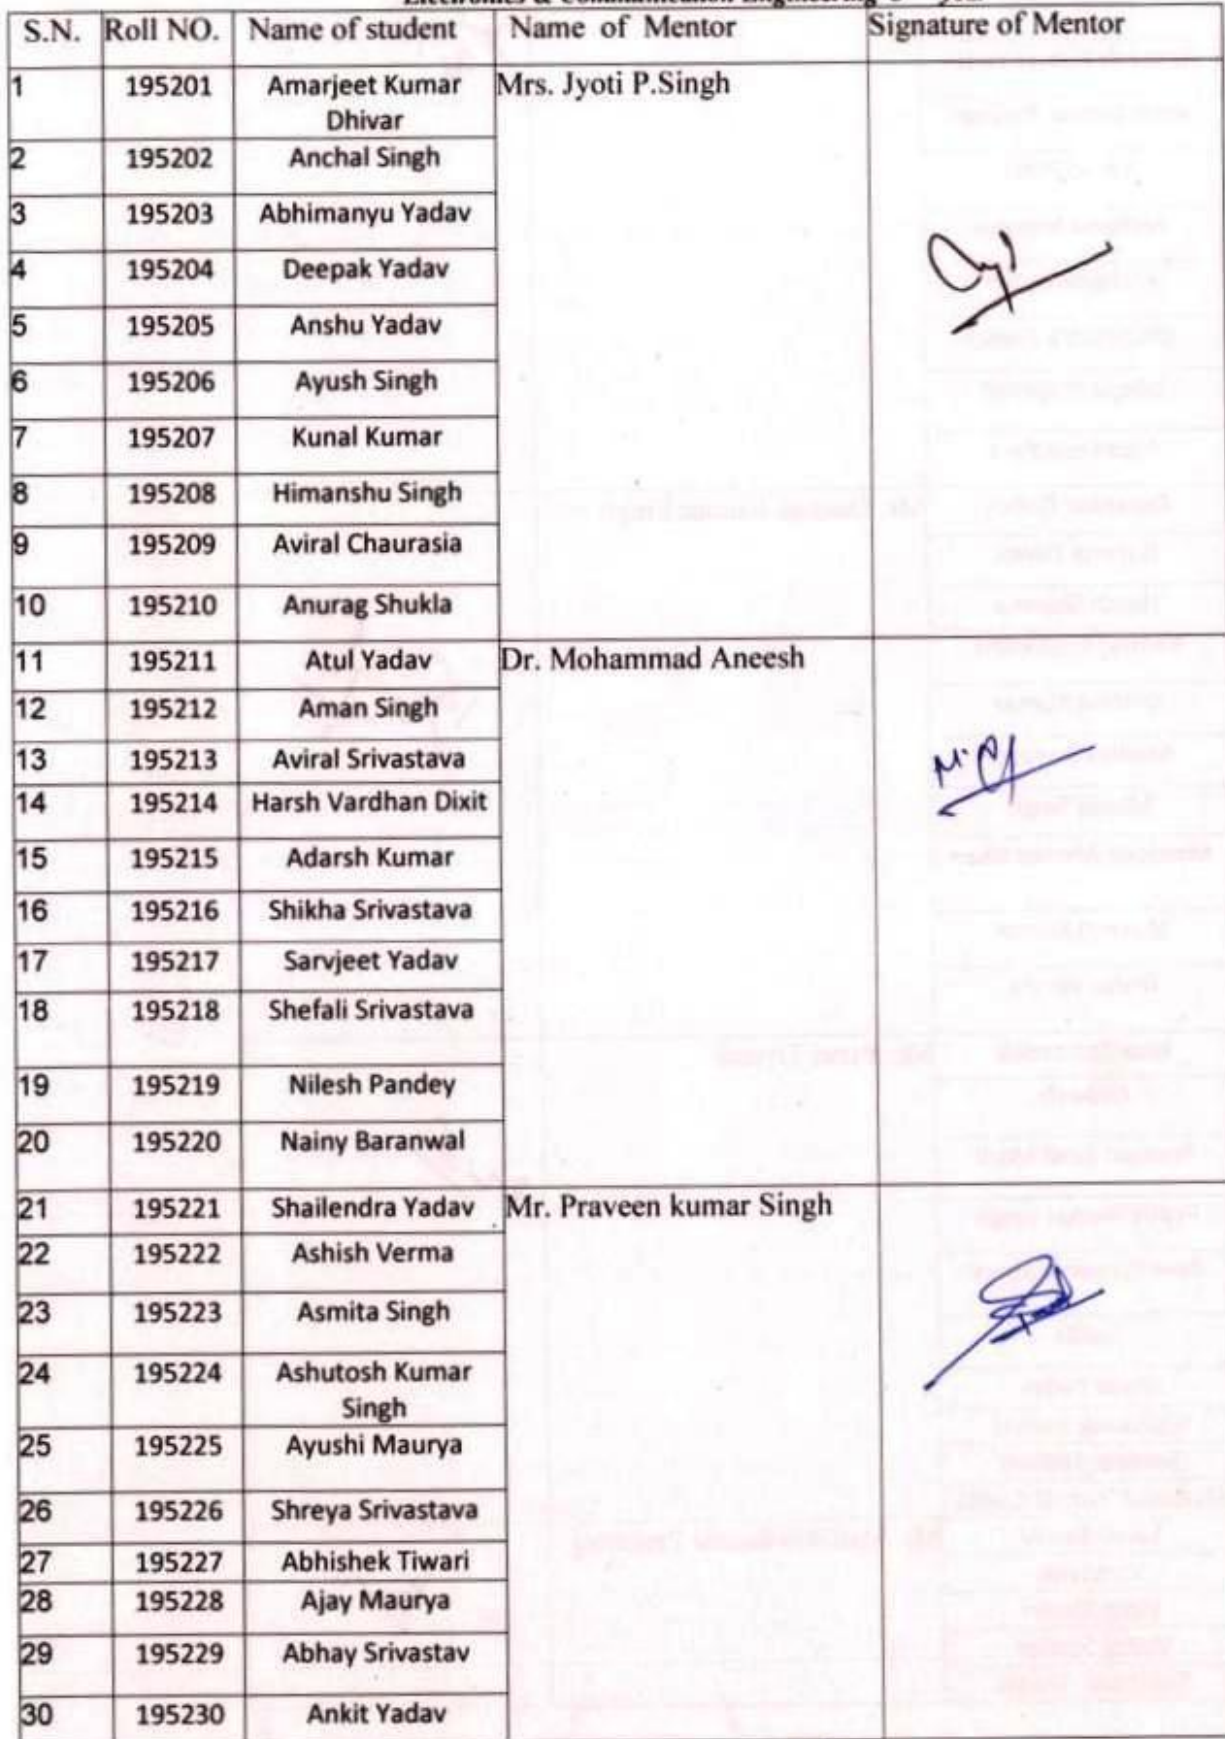 Electronics & Communication Engineering year
S.N. Roll NO. Name of student Name of Mentor Signature of Mentor
1 195201 Amarjeet Kumar Mrs. Jyoti P.Singh
Dhivar
2 195202 Anchal Singh
3 195203 Abhimanyu Yadav
4 195204 Deepak Yadav
5 195205 Anshu Yadav
6 195206 Ayush Singh
7 195207 Kunal Kumar
8 195208 Himanshu Singh
9 195209 Aviral Chaurasia
10 195210 Anurag Shukla
11 195211 Atul Yadav Dr. Mohammad Aneesh
12 195212 Aman Singh
13 195213 Aviral Srivastava
14 195214 Harsh Vardhan Dixit
15 195215 Adarsh Kumar
16 195216 Shikha Srivastava
17 195217 Sarvjeet Yadav
18 195218 Shefali Srivastava
19 195219 Nilesh Pandey
20 195220 Nainy Baranwal
21 195221 Shailendra Yadav Mr. Praveen kumar Singh
22 195222 Ashish Verma
23 195223 Asmita Singh
24 195224 Ashutosh Kumar
Singh
25 195225 Ayushi Maurya
26 195226 Shreya Srivastava
27 195227 Abhishek Tiwari
28 195228 Ajay Maurya
29 195229 Abhay Srivastav
30 195230 Ankit Yadav